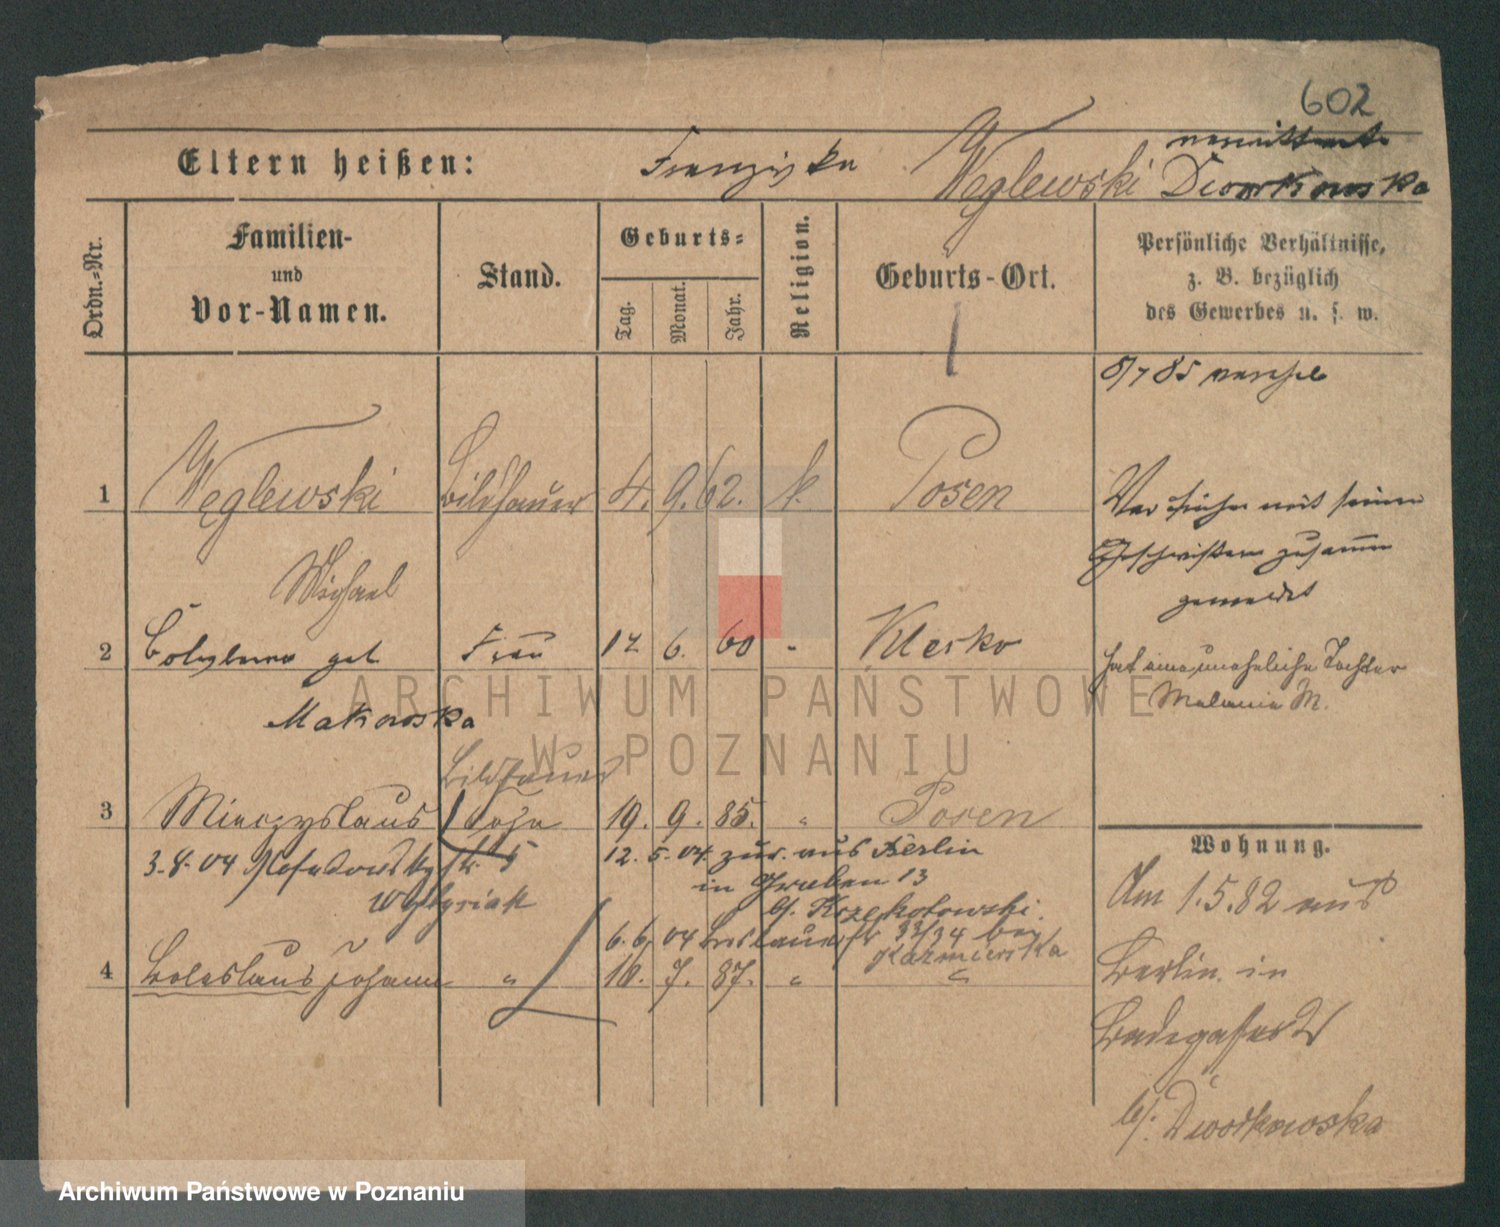 602
Eltern heißen: Franziska Węglewski Dworkowska
Ordn.-Nr.
Familien-
und
Vor-Namen.
Stand.
Geburts-
Tag.
Monat.
Jahr.
Religion.
Geburts-Ort.
Persönliche Verhältnisse,
z. B. bezüglich
des Gewerbes u. s. w.
8/7 85
1 Węglewski Bildhauer 4. 9. 62. k. Posen
Michael
War früher mit seinen
Geschwistern zusammen
gemeldet
2 geb Frau 12 6. 60 Klesko
Makowska
hat eine uneheliche Tochter
Melania M.
Bildhauer
3 Mieczyslaus Sohn 19. 9. 85. " Posen
3.8.04
12. 5. 04 zur. aus Berlin
in Graben 13
b/. Krzekotowski.
6. 6. 04 33/34 bei
Kazmierska
4 Boleslaus Johann " 10. 7. 87. " "
Wohnung.
Am 1.5.82 aus
Berlin in
b/. Dworkowska
ARCHIWUM PAŃSTWOWE
W POZNANIU
Archiwum Państwowe w Poznaniu